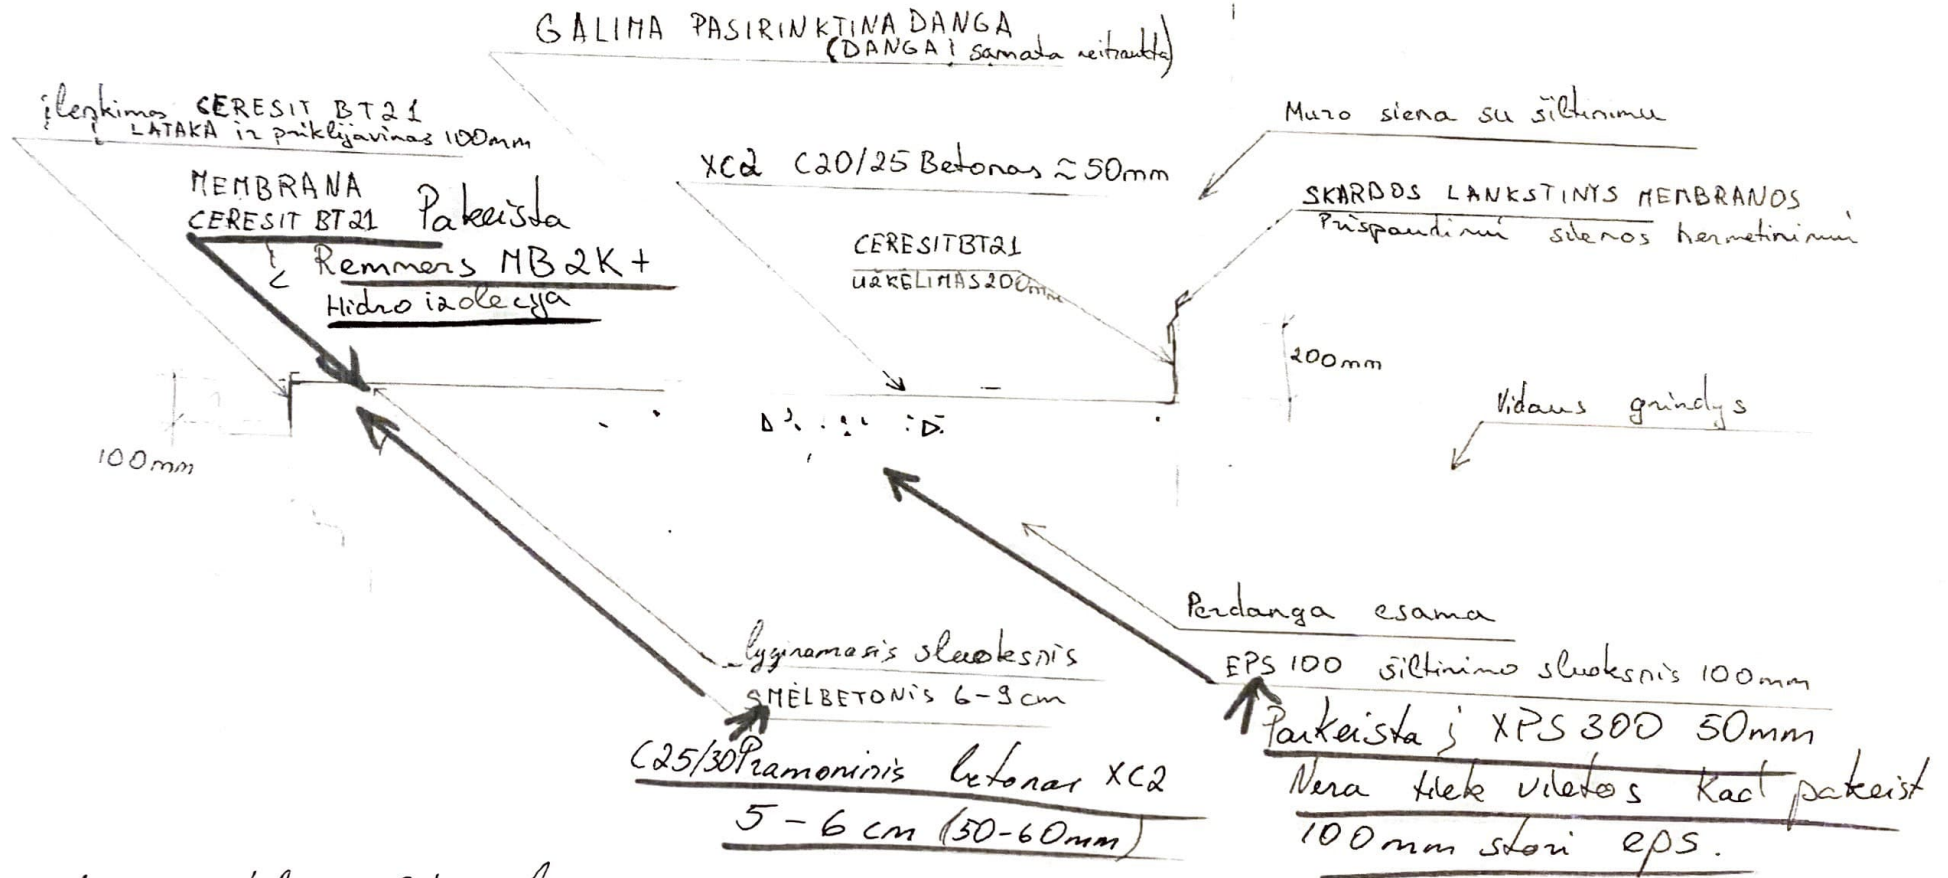 GALIMA PASIRINKTINA DANGA
(DANGA į samata neitraukta)
įlenkimas CERESIT BT21
į LATAKA ir priklijavimas 100mm
MEMBRANA
CERESIT BT21 Pakeista
į Remmers MB 2K +
Hidro izolecija
XC2 C20/25 Betonas ≈ 50mm
CERESIT BT21
UŽKĖLIMAS 200mm
Muro siena su šiltinimu
SKARDOS LANKSTINYS MEMBRANOS
Prispaudimui sienos hermetinimui
200mm
Vidaus grindys
100mm
Perdanga esama
lyginamasis sluoksnis
SMĖLBETONIS 6-9cm
C25/30 Pramoninis betonas XC2
5-6 cm (50-60mm)
EPS 100 šiltinimo sluoksnis 100mm
Pakeista į XPS 300 50mm
Nera tiek vietos kad pakeist
100mm stori eps.